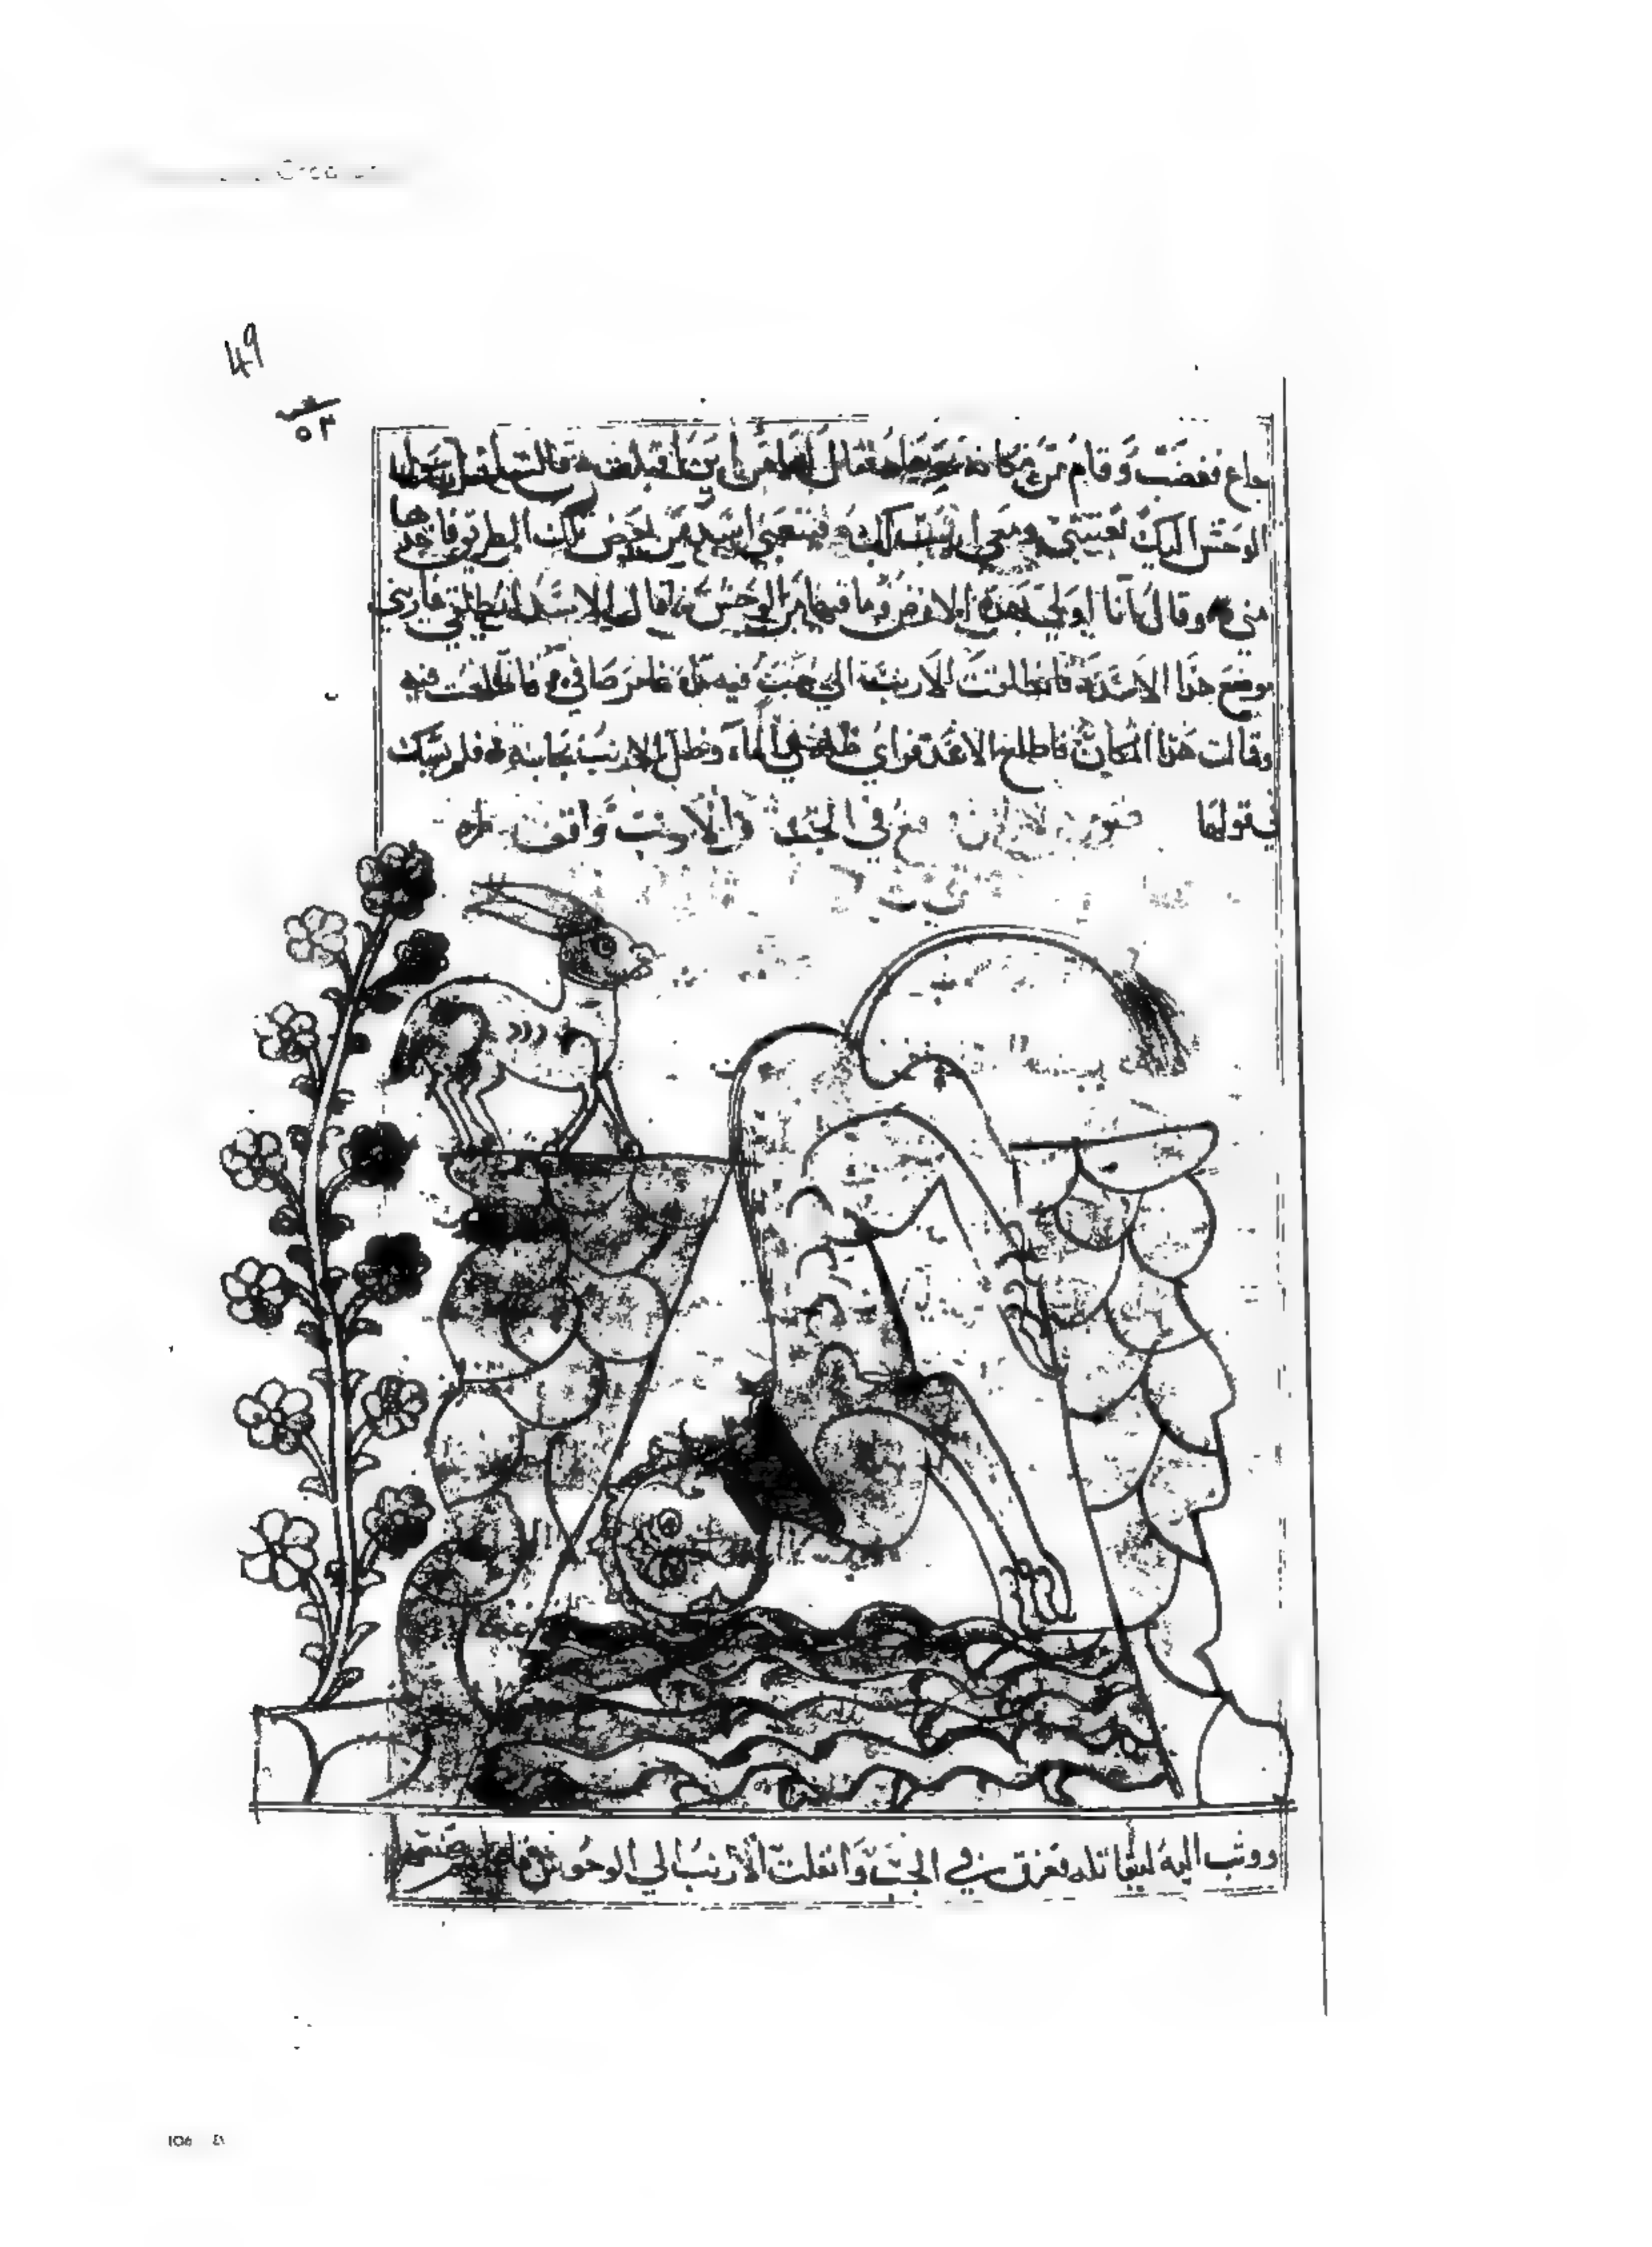 49
٥٣
جاع فغضب وقام من مكانه نحوها فقال لها من أين أقبلت قالت أنا رسول
الوحش اليك بعثتني ومعي ارنب لك فتبعني اسد من بعض تلك الطريق فاخذها
مني وقال أنا اولى بهذه الارض وما فيها من الوحش فقال الاسد انطلقي فاريني
موضع هذا الاسد فانطلقت الارنب الى جب فيه ماء غامر صافي فاطلعت فيه
وقالت هذا المكان فاطلع الاسد فراى ظله في الماء وظل الارنب بجانبه فلم يشك
في قولها في الجب والارنب واقف
ووثب اليه ليقاتله فغرق في الجب وانفلتت الأرنب الي الوحوش
106